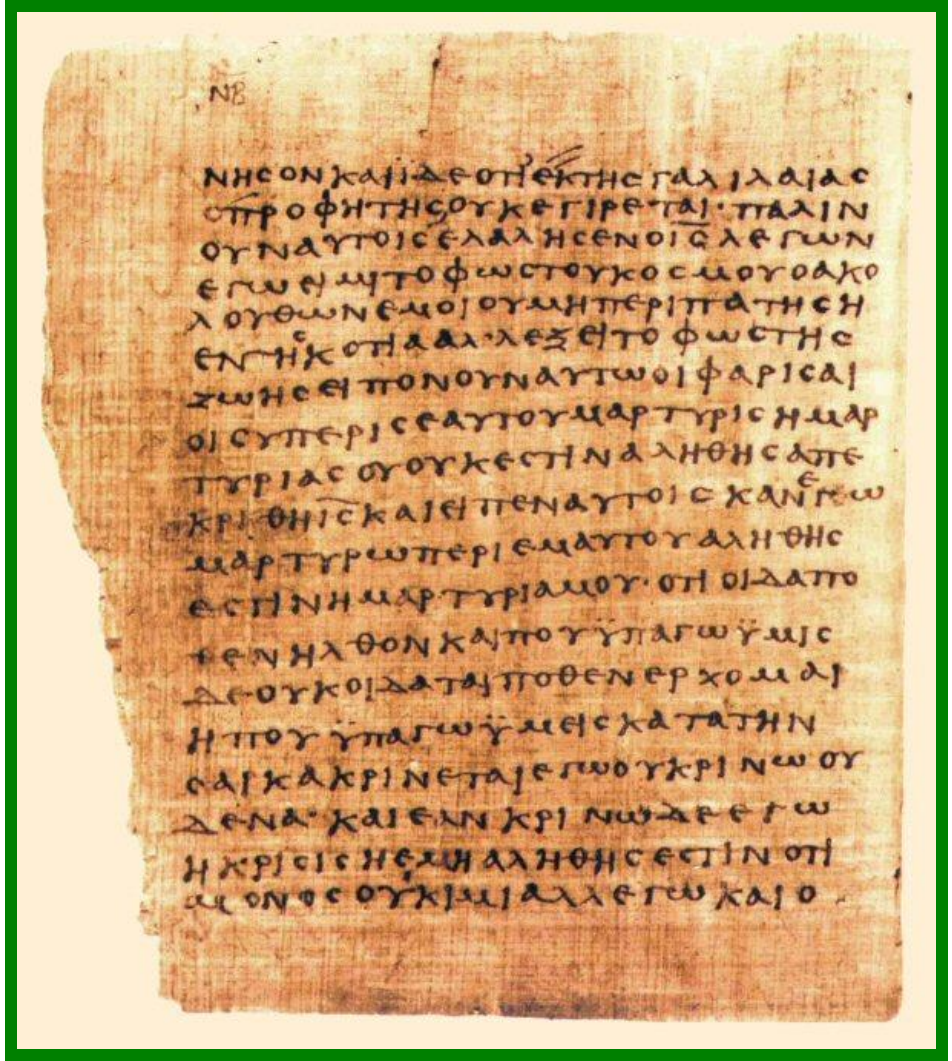 ΝΒ
ΝΗϹΟΝΚΑΙΪΔΕΟΤΙ ΕΚΤΗϹΓΑΛΙΛΑΙΑϹ
ΟΠΡΟΦΗΤΗϹΟΥΚΕΓΙΡΕΤΑΙ· ΠΑΛΙΝ
ΟΥΝΑΥΤΟΙϹΕΛΑΛΗϹΕΝΟΙ̅Ϲ̅ΛΕΓΩΝ
ΕΓΩΕΙΜΙΤΟΦΩϹΤΟΥΚΟϹΜΟΥΟΑΚΟ
ΛΟΥΘΩΝΕΜΟΙΟΥΜΗΠΕΡΙΠΑΤΗϹΗ
ΕΝΤΗϹΚΟΤΙΑΑΛ·ΛΕΞΕΙΤΟΦΩϹΤΗϹ
ΖΩΗϹΕΙΠΟΝΟΥΝΑΥΤΩΟΙΦΑΡΙϹΑΙ
ΟΙϹΥΠΕΡΙϹΕΑΥΤΟΥΜΑΡΤΥΡΙϹΗΜΑΡ
ΤΥΡΙΑϹΟΥΟΥΚΕϹΤΙΝΑΛΗΘΗϹΑΠΕ
ΚΡΙΘΗΙ̅Ϲ̅ΚΑΙΕΙΠΕΝΑΥΤΟΙϹΚΑΝΕΓΩ
ΜΑΡΤΥΡΩΠΕΡΙΕΜΑΥΤΟΥΑΛΗΘΗϹ
ΕϹΤΙΝΗΜΑΡΤΥΡΙΑΜΟΥ·ΟΤΙΟΙΔΑΠΟ
ΘΕΝΗΛΘΟΝΚΑΙΠΟΥΫΠΑΓΩΫΜΙϹ
ΔΕΟΥΚΟΙΔΑΤΑΙΠΟΘΕΝΕΡΧΟΜΑΙ
ΗΠΟΥΫΠΑΓΩΫΜΕΙϹΚΑΤΑΤΗΝ
ϹΑΙΚΑΚΡΙΝΕΤΑΙΕΓΩΟΥΚΡΙΝΩΟΥ
ΔΕΝΑ·ΚΑΙΕΑΝΚΡΙΝΩΔΕΕΓΩ
ΗΚΡΙϹΙϹΗΕΜΗΑΛΗΘΗϹΕϹΤΙΝΟΤΙ
ΜΟΝΟϹΟΥΚΙΜΙΑΛΛΕΓΩΚΑΙΟ